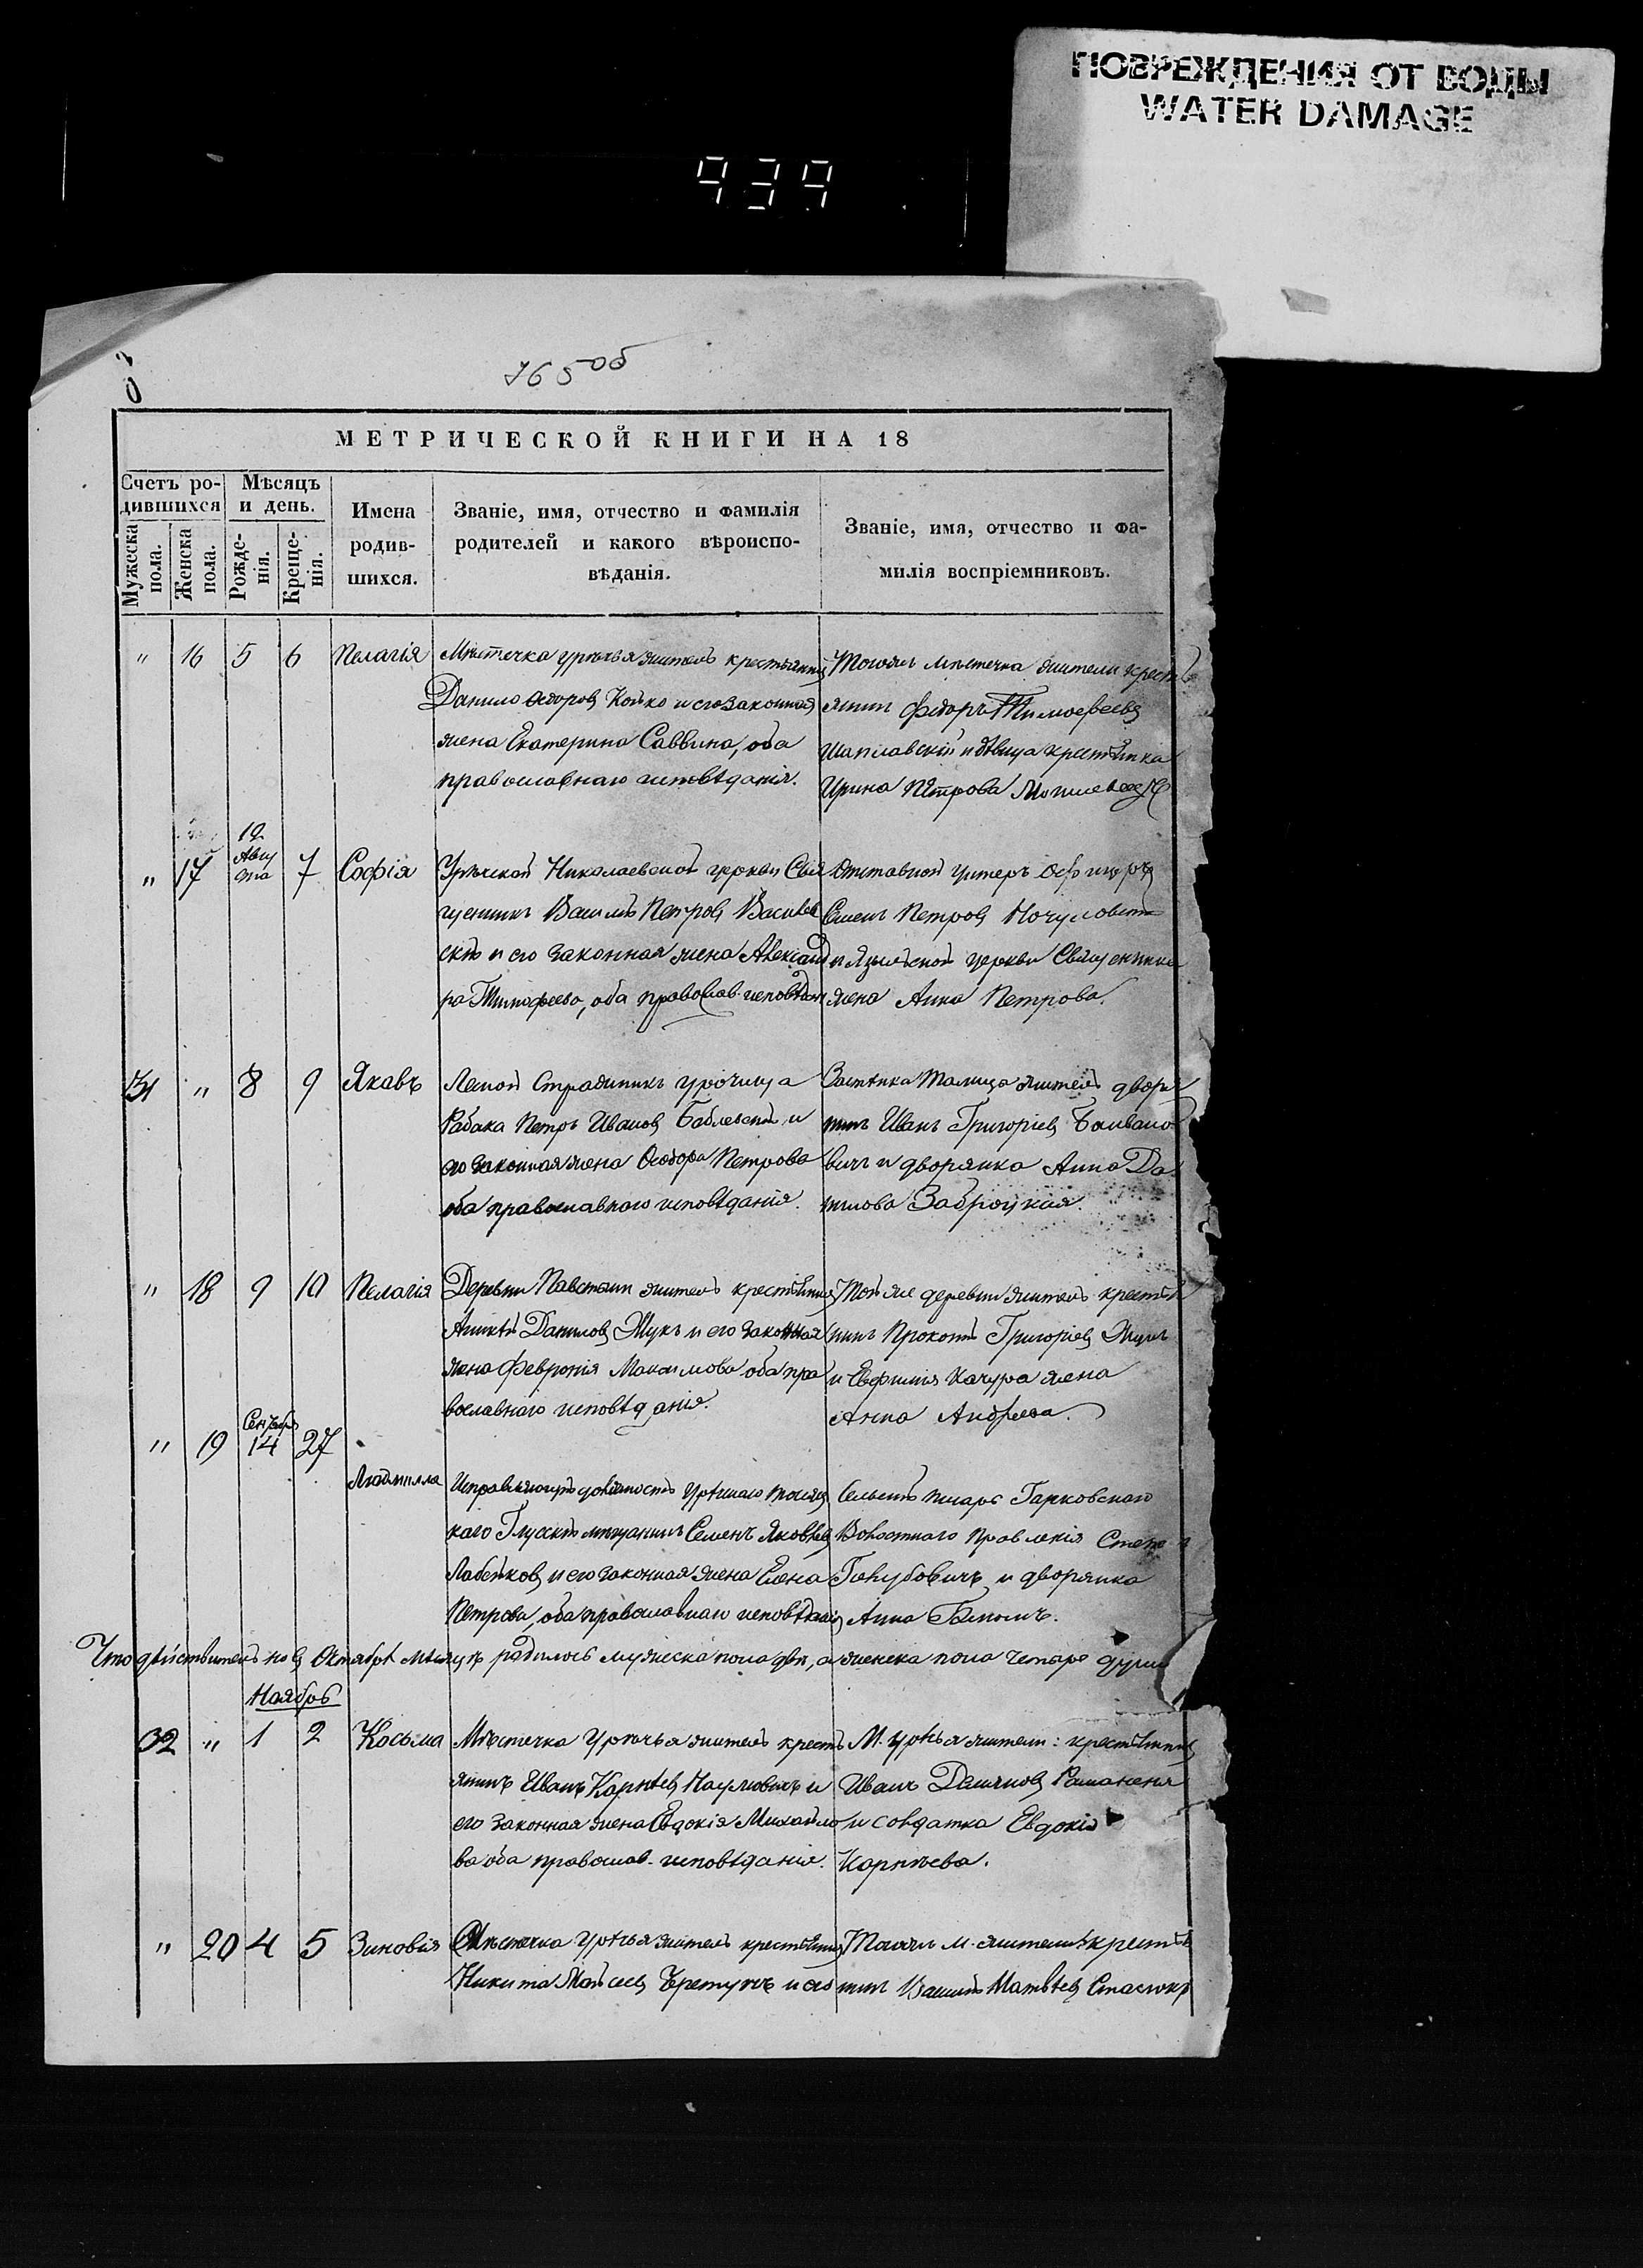 ПОВРЕЖДЕНИЯ ОТ ВОДЫ
WATER DAMAGE
939
765 об
МЕТРИЧЕСКОЙ КНИГИ НА 18
Счетъ ро-
дившихся
Мужеска
пола.
Женска
пола.
Мѣсяцъ
и день.
Рожде-
нія.
Креще-
нія.
Имена
родив-
шихся.
Званіе, имя, отчество и фамилія
родителей и какого вѣроиспо-
вѣданія.
Званіе, имя, отчество и фа-
милія воспріемниковъ.
" 16 5 6 Пелагія
Мѣстечка Урѣчья житель крестьянинъ
Данило Ѳедоровъ Койко и его законная
жена Екатерина Саввина, оба
православнаго исповѣданія.
Тогожъ мѣстечка жители крестъ
янинъ Федоръ Тимофеевъ
и дѣвица крестьянка
Ирина Петрова
" 17 12 Авгу
ста 7 Софія
Урѣчской Николаевской церкви Свя
щенникъ Василій Петровъ Василев
скій и его законная жена Александ
ра Тимофеева, оба православ. исповѣдан
Отставной Унтеръ Офицеръ
Семенъ Петровъ
и Языльской церкви Священника
жена Анна Петрова.
31 " 8 9 Яковъ
Лесной Стражникъ урочища
Рабака Петръ Ивановъ Баблевскій и
его законная жена Ѳеодора Петрова
оба православнаго исповѣданія.
Застѣнка Талица житель дворя
нинъ Иванъ Григоріевъ Болвано
вичъ и дворянка Анна Да
нилова Заброцкая.
" 18 9 10 Пелагія
Деревни Павстыни житель крестьянинъ
Аникѣй Даниловъ Жукъ и его законная
жена Февронія Максимова оба пра
вославнаго исповѣданія.
Той же деревни житель крестья
нинъ Прокопій Григоріевъ Жукъ
и Евфимія Качура жена
Анна Андреева.
" 19 Сентября
14 27
Людмилла
Исправляющій должность Урѣчскаго
Глускій мѣщанинъ Семенъ Яковлевъ
и его законная жена Елена
Петрова, оба православнаго исповѣданія
Сельскій писарь Гарковскаго
Волостнаго Правленія
Голубовичъ и дворянка
Анна
Что дѣйствительно въ Октябрѣ мѣсяцѣ родилось мужеска пола два, а женска пола четыре душъ
Ноябрь
32 " 1 2 Косьма
Мѣстечка Урѣчья житель кресть
янинъ Иванъ Карнѣевъ Наумовичъ и
его законная жена Евдокія Михайло
ва оба православ. исповѣданія.
М. Урѣчья жители: крестьянинъ
Иванъ Демяновъ Романеня
и солдатка Евдокія
Карнѣева.
" 20 4 5 Зиновія
Мѣстечка Урѣчья житель крестьянинъ
Никита Мойсеевъ и его
Тогожъ м. жители: кресть
нинъ Василій Матвѣевъ Стасюкъ